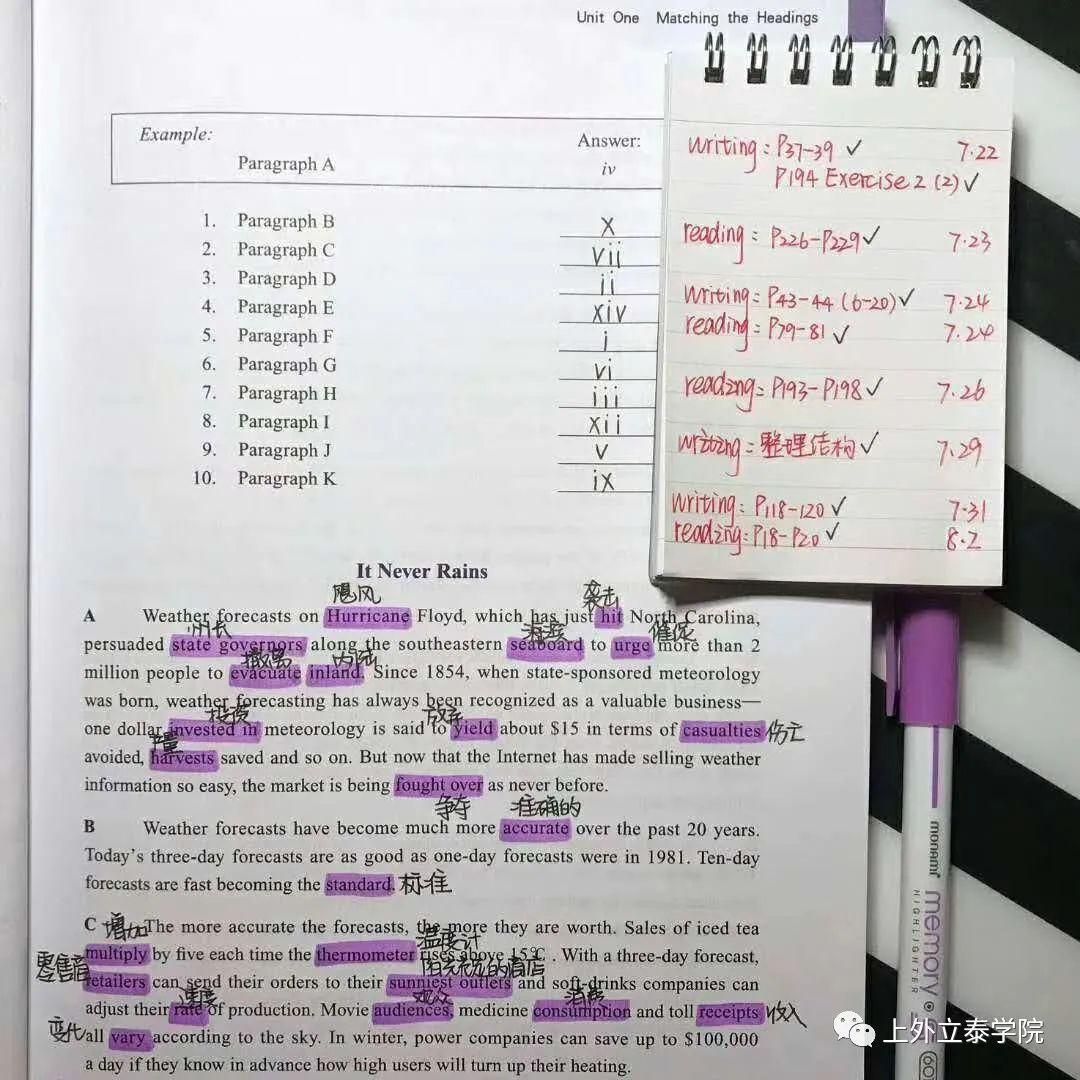 Unit One Matching the Headings
Example:
Answer:
Paragraph A
iv
1. Paragraph B x
2. Paragraph C vii
3. Paragraph D ii
4. Paragraph E xiv
5. Paragraph F i
6. Paragraph G vi
7. Paragraph H iii
8. Paragraph I xii
9. Paragraph J v
10. Paragraph K ix
writing: P37-39 ✓ 7.22
P194 Exercise 2 (2) ✓
reading: P226-P229 ✓ 7.23
writing: P43-44 (6-20) ✓ 7.24
reading: P79-81 ✓ 7.24
reading: P193-P198 ✓ 7.26
writing: 整理结构 ✓ 7.29
writing: P118-120 ✓ 7.31
reading: P18-P20 ✓ 8.2
It Never Rains
飓风 袭击
A Weather forecasts on Hurricane Floyd, which has just hit North Carolina,
州长 海岸 催促
persuaded state governors along the southeastern seaboard to urge more than 2
撤离 内陆
million people to evacuate inland. Since 1854, when state-sponsored meteorology
was born, weather forecasting has always been recognized as a valuable business—
投资 放弃
one dollar invested in meteorology is said to yield about $15 in terms of casualties 伤亡
产量
avoided, harvests saved and so on. But now that the Internet has made selling weather
information so easy, the market is being fought over as never before.
争夺 准确的
B Weather forecasts have become much more accurate over the past 20 years.
Today's three-day forecasts are as good as one-day forecasts were in 1981. Ten-day
forecasts are fast becoming the standard. 标准
C 增加 The more accurate the forecasts, the more they are worth. Sales of iced tea
温度计
multiply by five each time the thermometer rises above 15℃. With a three-day forecast,
零售商 阳光充足的商店
retailers can send their orders to their sunniest outlets and soft-drinks companies can
速度 观众 消费
adjust their rate of production. Movie audiences, medicine consumption and toll receipts 收入
变化 all vary according to the sky. In winter, power companies can save up to $100,000
a day if they know in advance how high users will turn up their heating.
monami
memory
HIGHLIGHTER
60
上外立泰学院